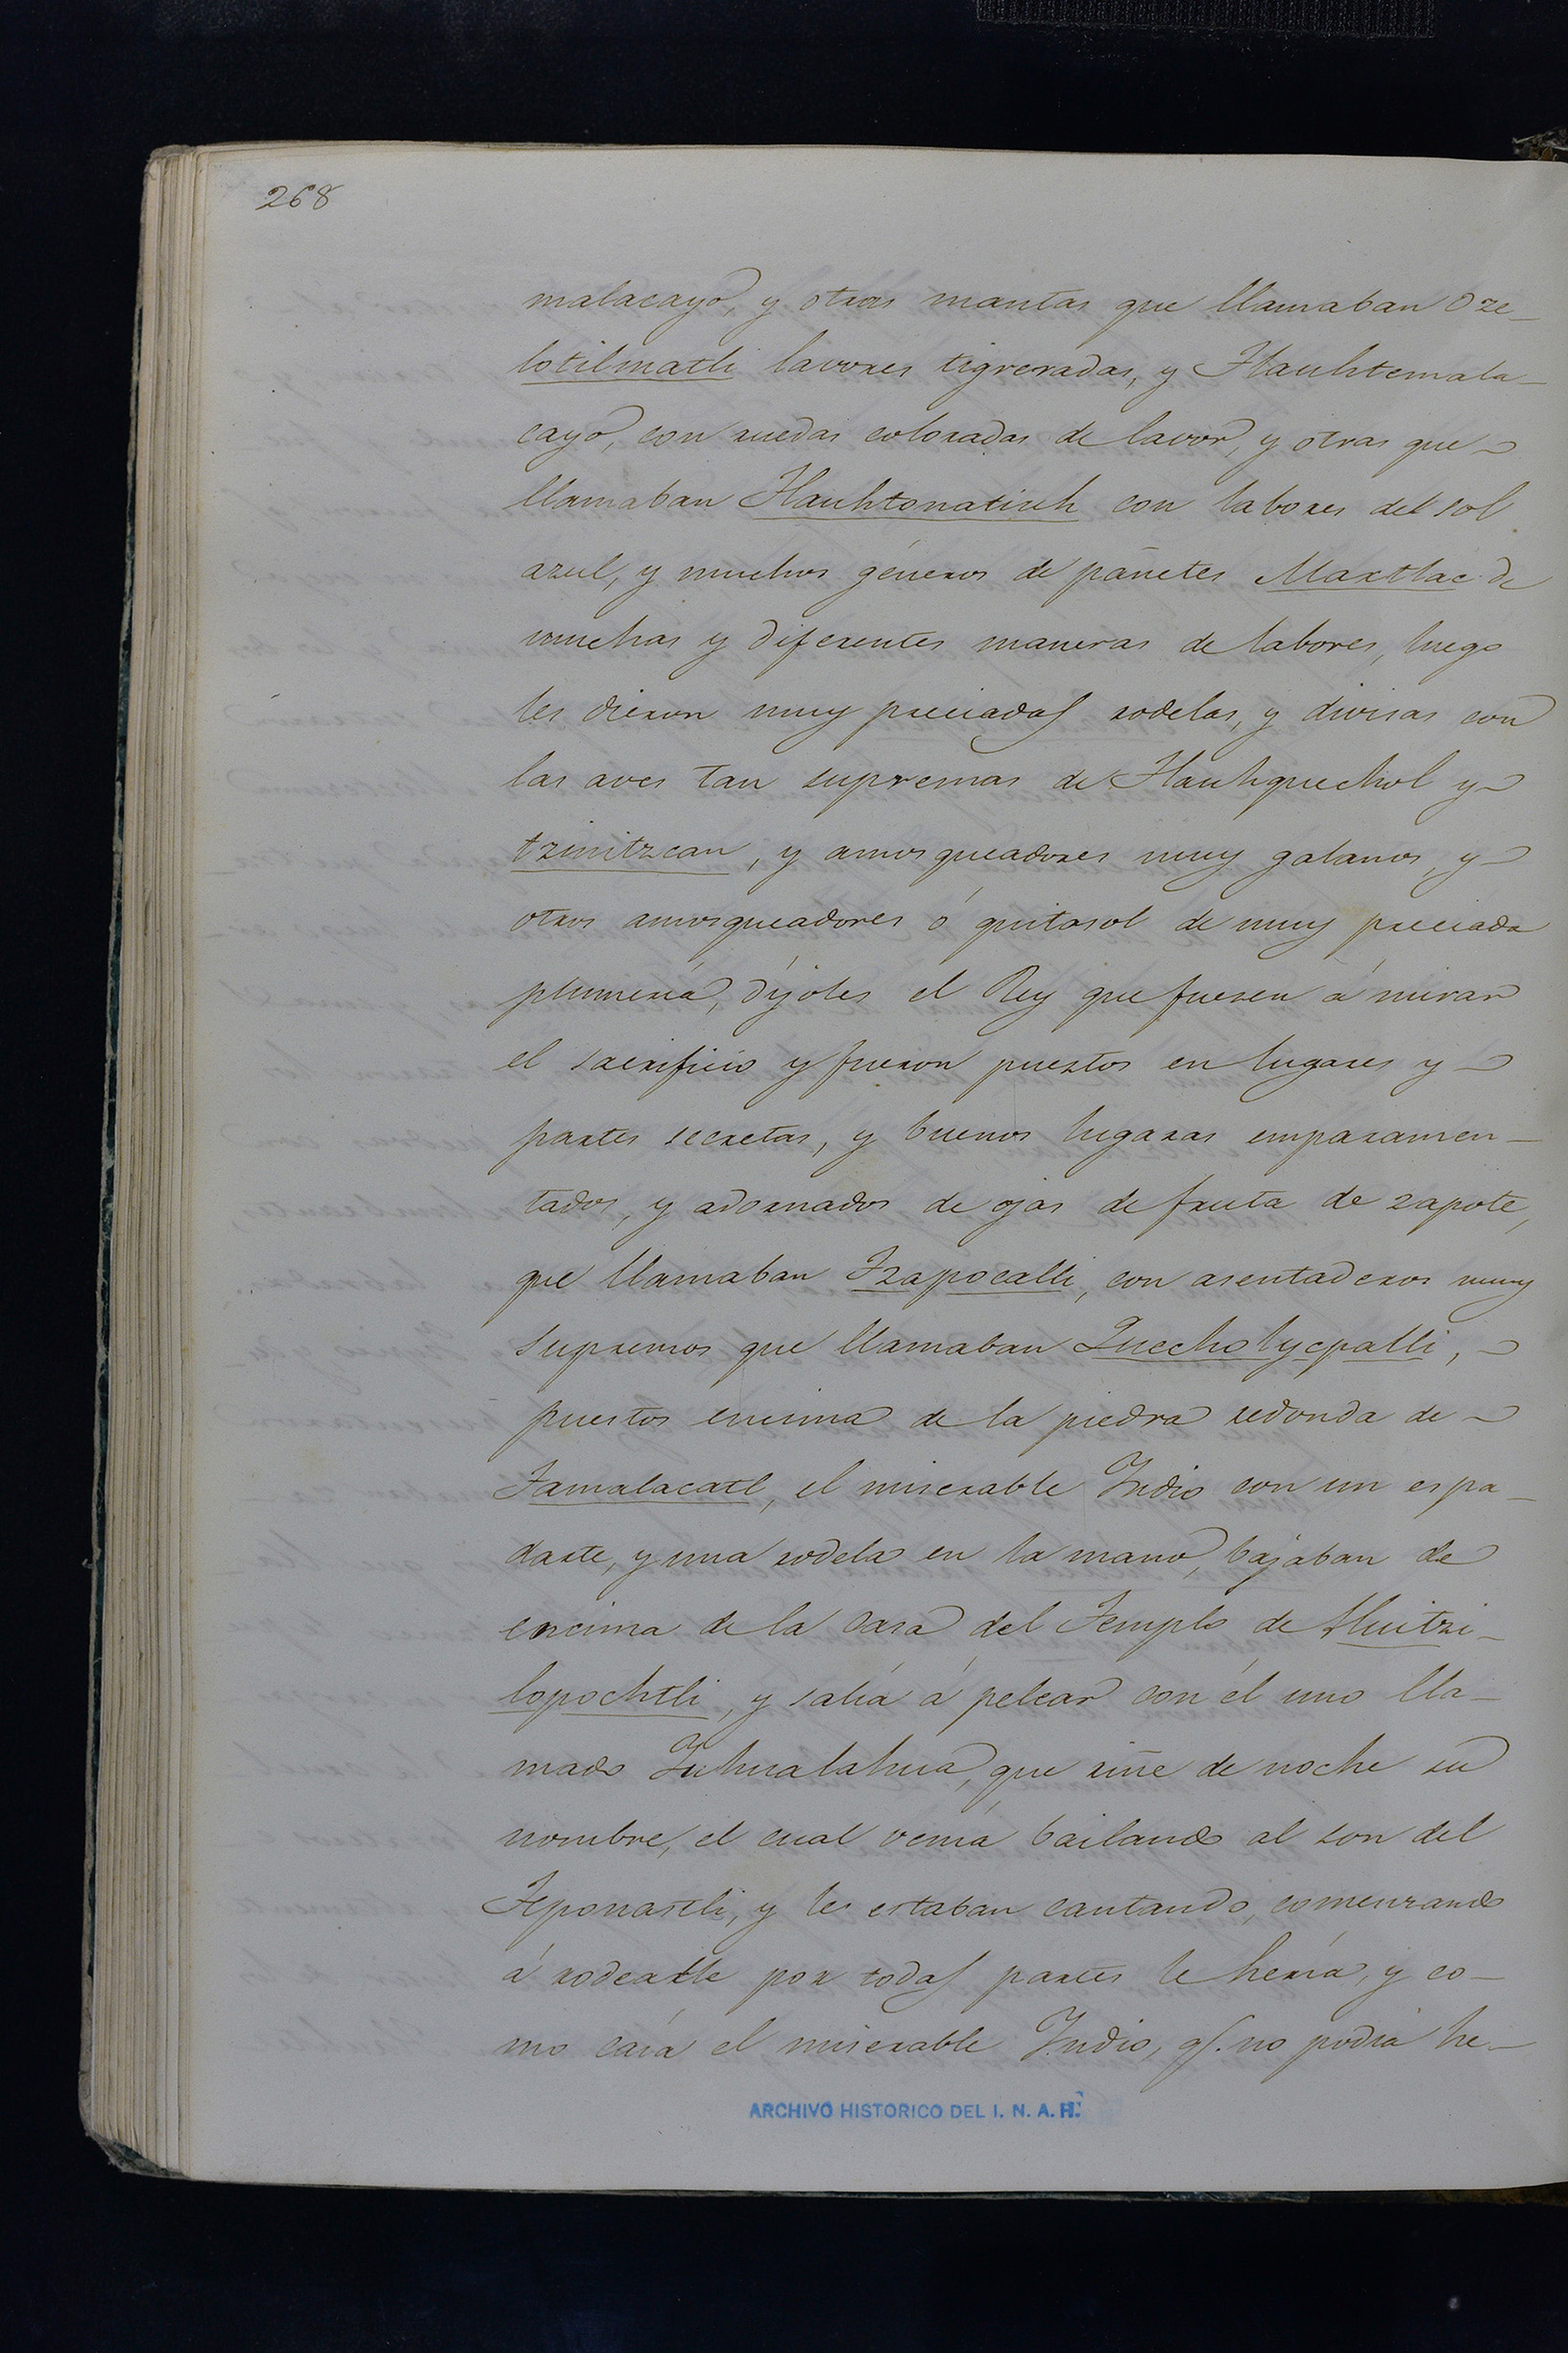 268
malacayo, y otras mantas que llamaban Oze-
lotilmatli lavores tigreradas, y Tlauhtemala-
cayo, con ruedas coloradas de lavor, y otras que
llamaban Tlauhtonatiuh con labores del sol
azul, y muchos géneros de pañetes Maxtlac de
muchas y diferentes maneras de labores, luego
les dieron muy preciadas rodelas, y divisas con
las aves tan supremas de Tlauhquechol y
tzinitzcan, y amosqueadores muy galanos, y
otros amosqueadores ó quitasol de muy preciada
plumería, díjoles el Rey que fuesen á mirar
el sacrificio y fueron puestos en lugares y
partes secretas, y buenos lugaras emparamen-
tados, y adornados de ojas de fruta de zapote,
que llamaban Tzapocalli, con asentaderos muy
supremos que llamaban Quecholycpalli,
puestos encima de la piedra redonda de
Tamalacatl, el miserable Indio con un espa-
darte, y una rodela en la mano, bajaban de
encima de la Casa del Templo de Huitzi-
lopochtli, y salía á pelear con él uno lla-
mado Yuhualahua, que riñe de noche su
nombre, el cual venía bailando al son del
Teponastli, y le estaban cantando, comenzando
á rodearle por todas partes le hería, y co-
mo caía el miserable Indio, q. no podía he-
ARCHIVO HISTORICO DEL I. N. A. H.